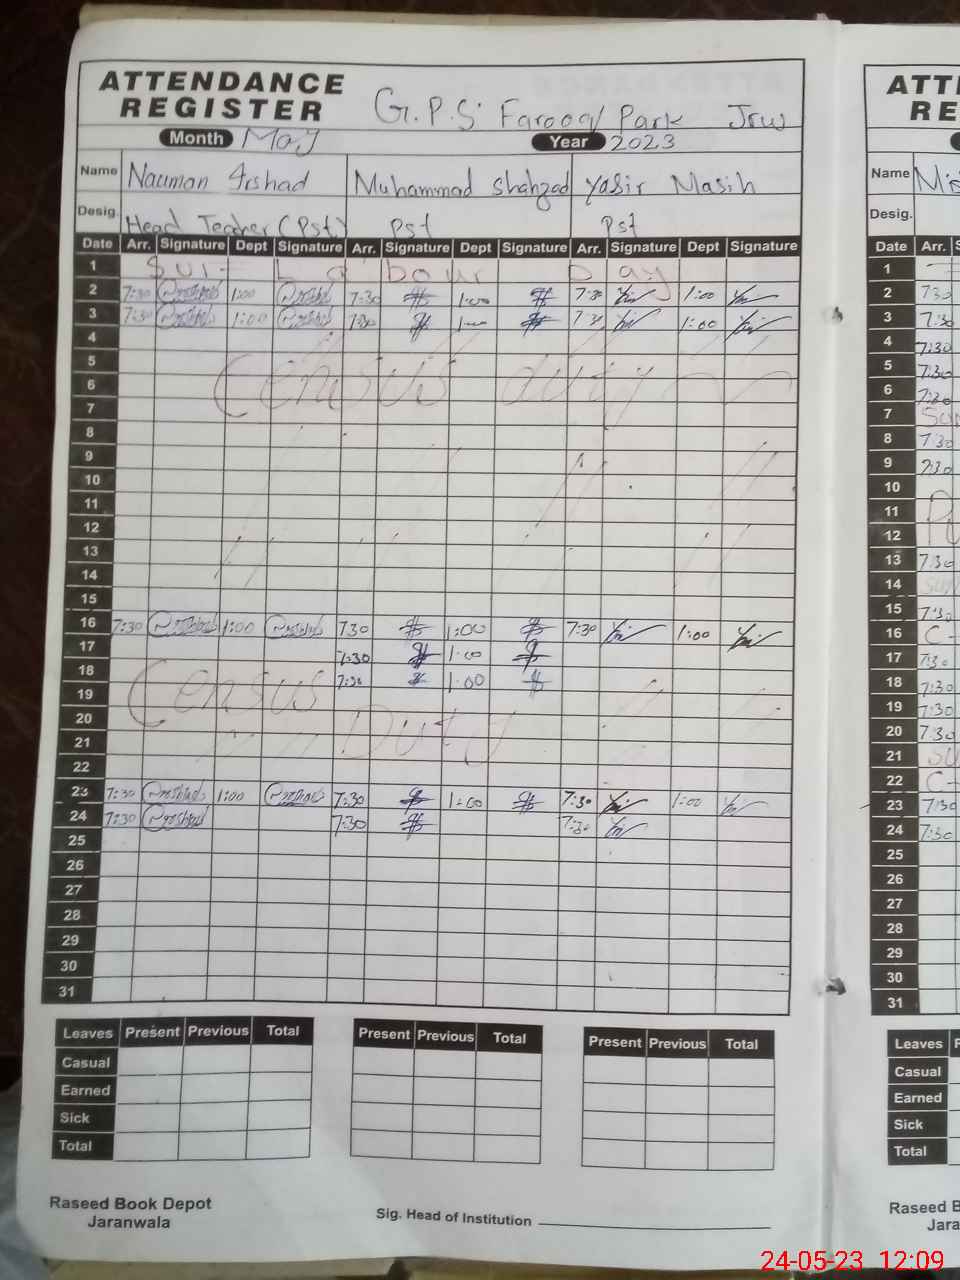 ATTENDANCE
REGISTER
G.P.S. Farooq Park Jrw
Month May Year 2023
Name Nauman Arshad Muhammad Shahzad Yasir Masih
Desig. Head Teacher (Pst) Pst Pst
Date Arr. Signature Dept Signature Arr. Signature Dept Signature Arr. Signature Dept Signature
1 Labour Day
2 7:30 1:00 7:30 1:00 7:30 1:00
3 7:30 1:00 7:30 1:00 7:30 1:00
4
5
6 Census duty
7
8
9
10
11
12
13
14
15
16 7:30 1:00 7:30 1:00 7:30 1:00
17 7:30 1:00
18 7:30 1:00
19 Census
20 Duty
21
22
23 7:30 1:00 7:30 1:00 7:30 1:00
24 7:30 7:30 7:30
25
26
27
28
29
30
31
Leaves Present Previous Total Present Previous Total Present Previous Total
Casual
Earned
Sick
Total
Raseed Book Depot
Jaranwala
Sig. Head of Institution
ATT
RE
Name
Desig.
Date Arr.
1
2 7:30
3 7:30
4 7:30
5 7:30
6 7:30
7
8 7:30
9 7:30
10
11
12
13 7:30
14
15 7:30
16
17 7:30
18 7:30
19 7:30
20 7:30
21
22
23 7:30
24 7:30
25
26
27
28
29
30
31
Leaves
Casual
Earned
Sick
Total
Raseed B
Jara
24-05-23 12:09